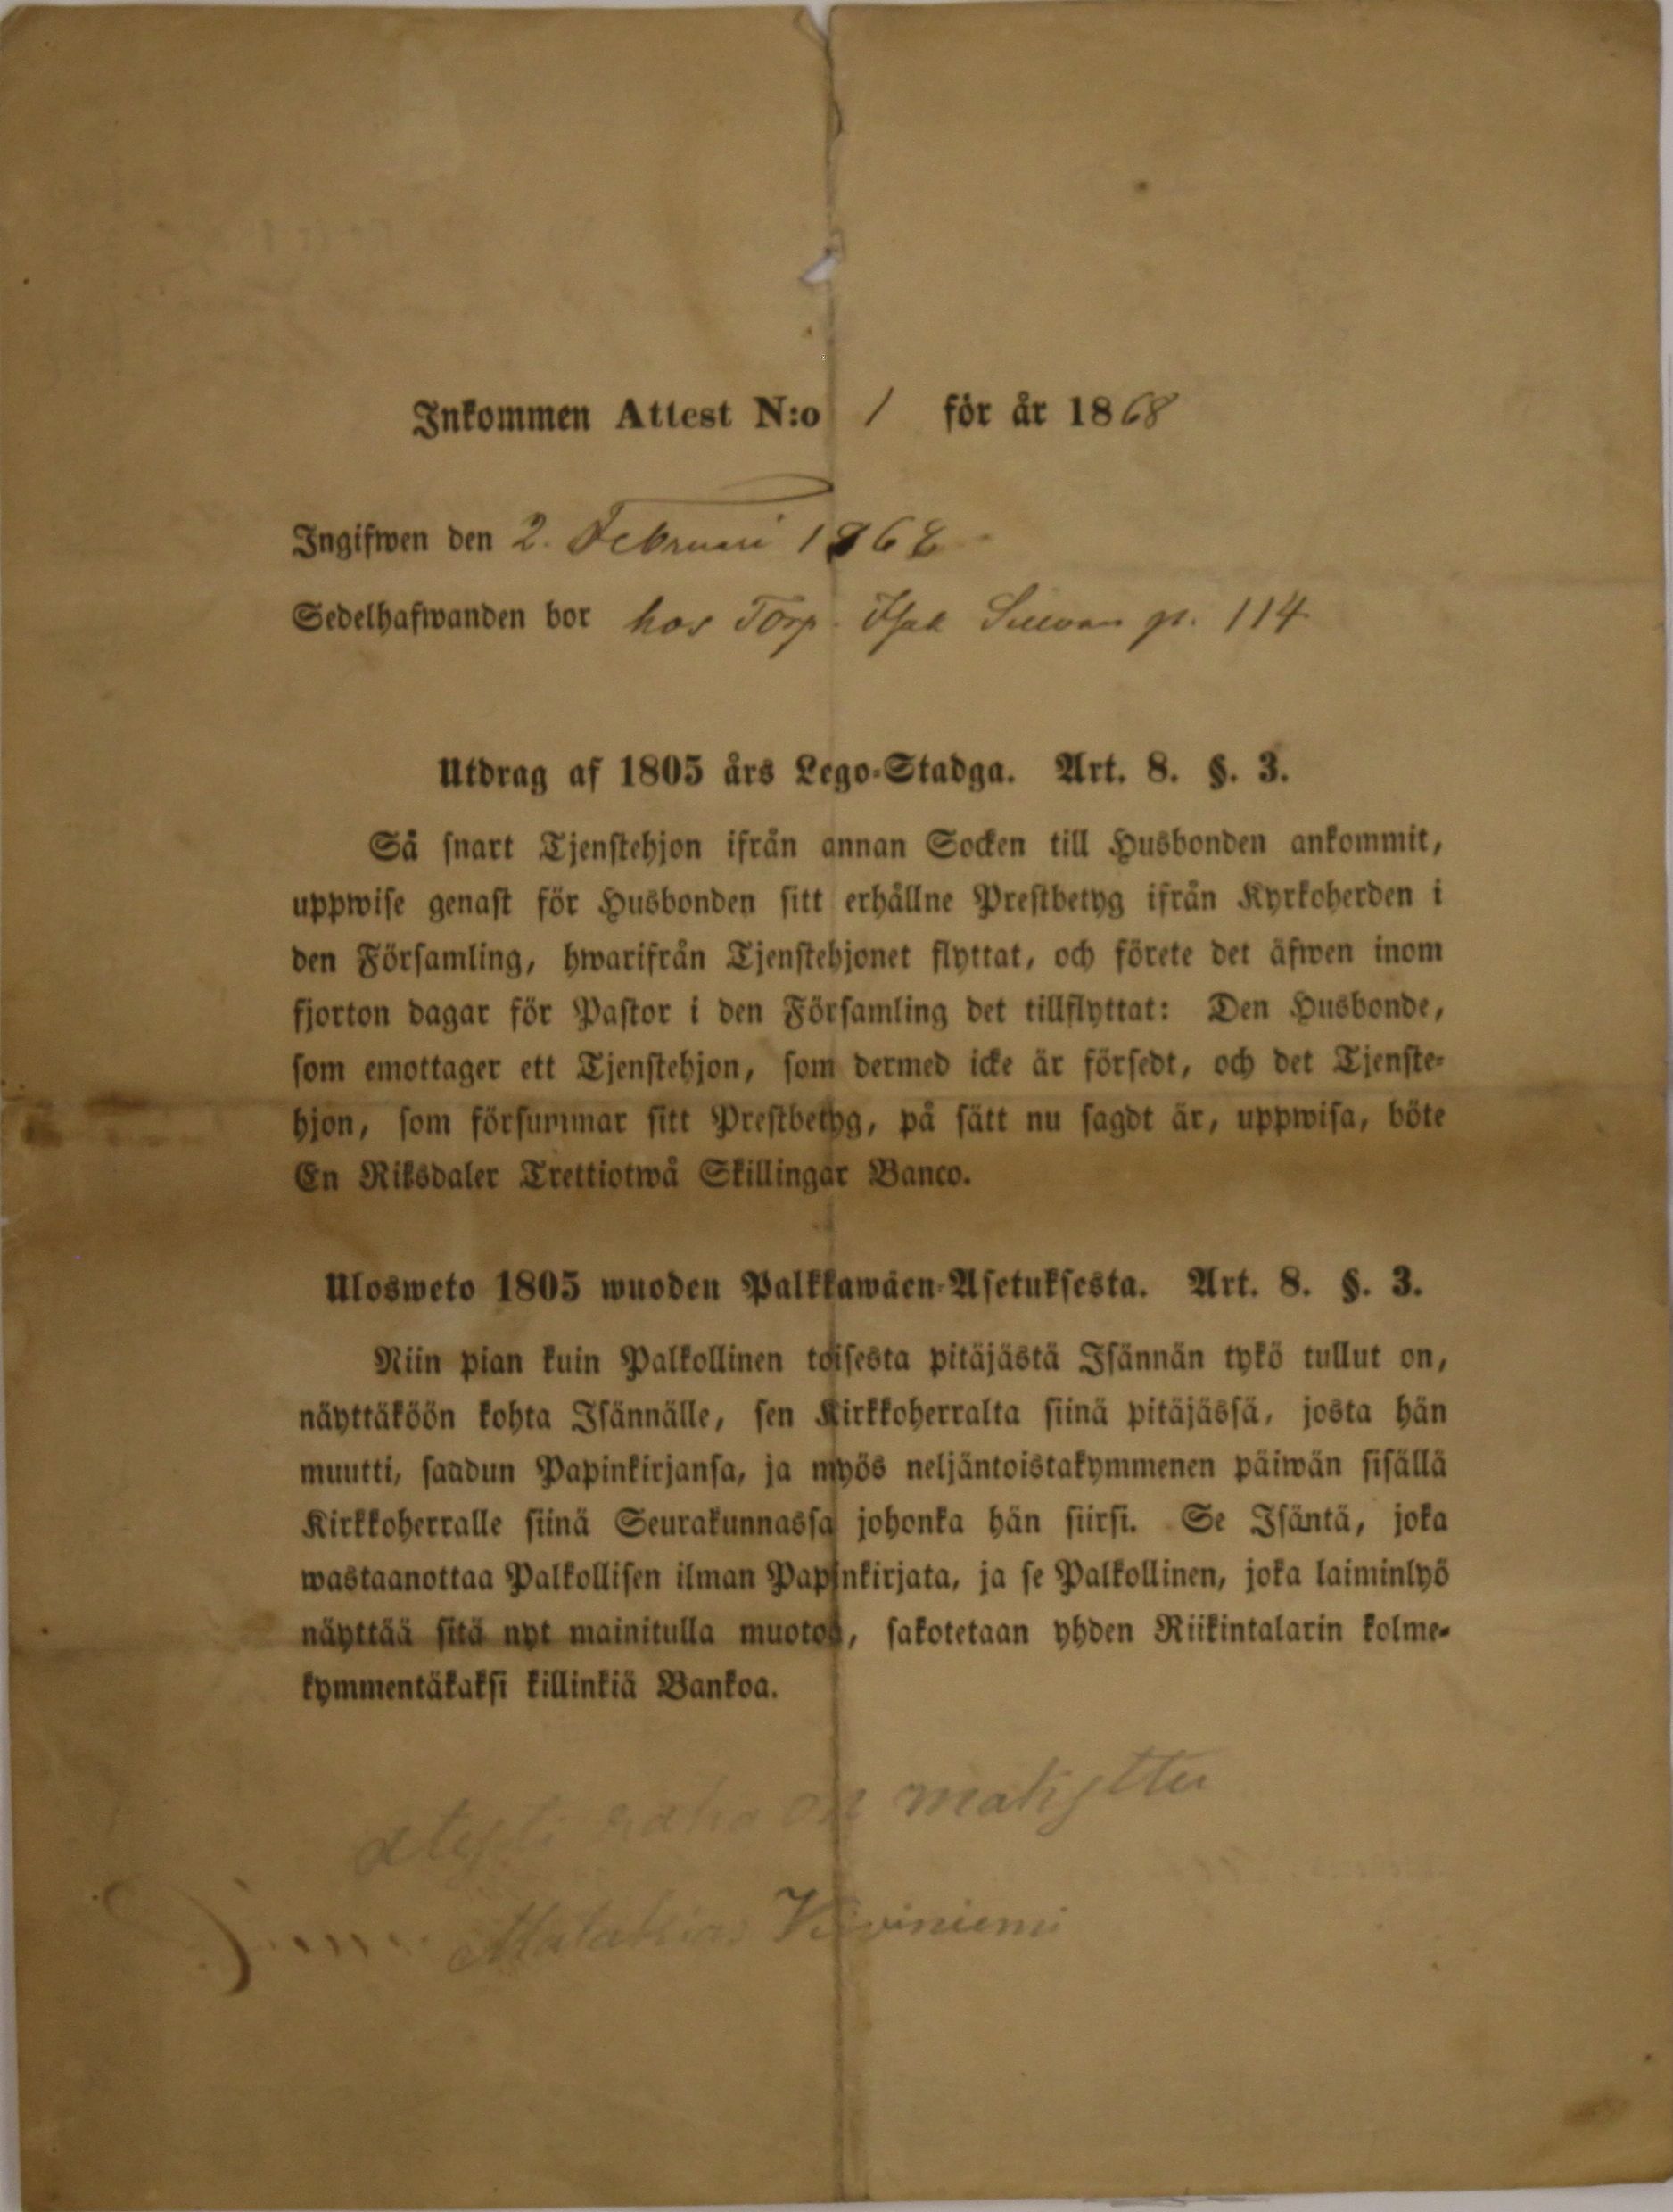 Inkommen Attest N:o 1 för år 1868
Ingifwen den 2. Februari 1868
Sedelhafwanden bor hos Torp. Isak p. 114
Utdrag af 1805 års Lego-Stadga. Art. 8. §. 3.
Så snart Tjenstehjon ifrån annan Socken till Husbonden ankommit,
uppwise genast för Husbonden sitt erhållne Prestbetyg ifrån Kyrkoherden i
den Församling, hwarifrån Tjenstehjonet flyttat, och förete det äfwen inom
fjorton dagar för Pastor i den Församling det tillflyttat: Den Husbonde,
som emottager ett Tjenstehjon, som dermed icke är försedt, och det Tjenste-
hjon, som försummar sitt Prestbetyg, på sätt nu sagdt är, uppwisa, böte
En Riksdaler Trettiotwå Skillingar Banco.
Ulosweto 1805 wuoden Palkkawäen-Asetuksesta. Art. 8. §. 3.
Niin pian kuin Palkollinen toisesta pitäjästä Isännän tykö tullut on,
näyttäköön kohta Isännälle, sen Kirkkoherralta siinä pitäjässä, josta hän
muutti, saadun Papinkirjansa, ja myös neljäntoistakymmenen päiwän sisällä
Kirkkoherralle siinä Seurakunnassa johonka hän siirsi. Se Isäntä, joka
wastaanottaa Palkollisen ilman Papinkirjata, ja se Palkollinen, joka laiminlyö
näyttää sitä nyt mainitulla muotoa, sakotetaan yhden Riikintalarin kolme-
kymmentäkaksi killinkiä Bankoa.
raha on maksettu
Kiviniemi